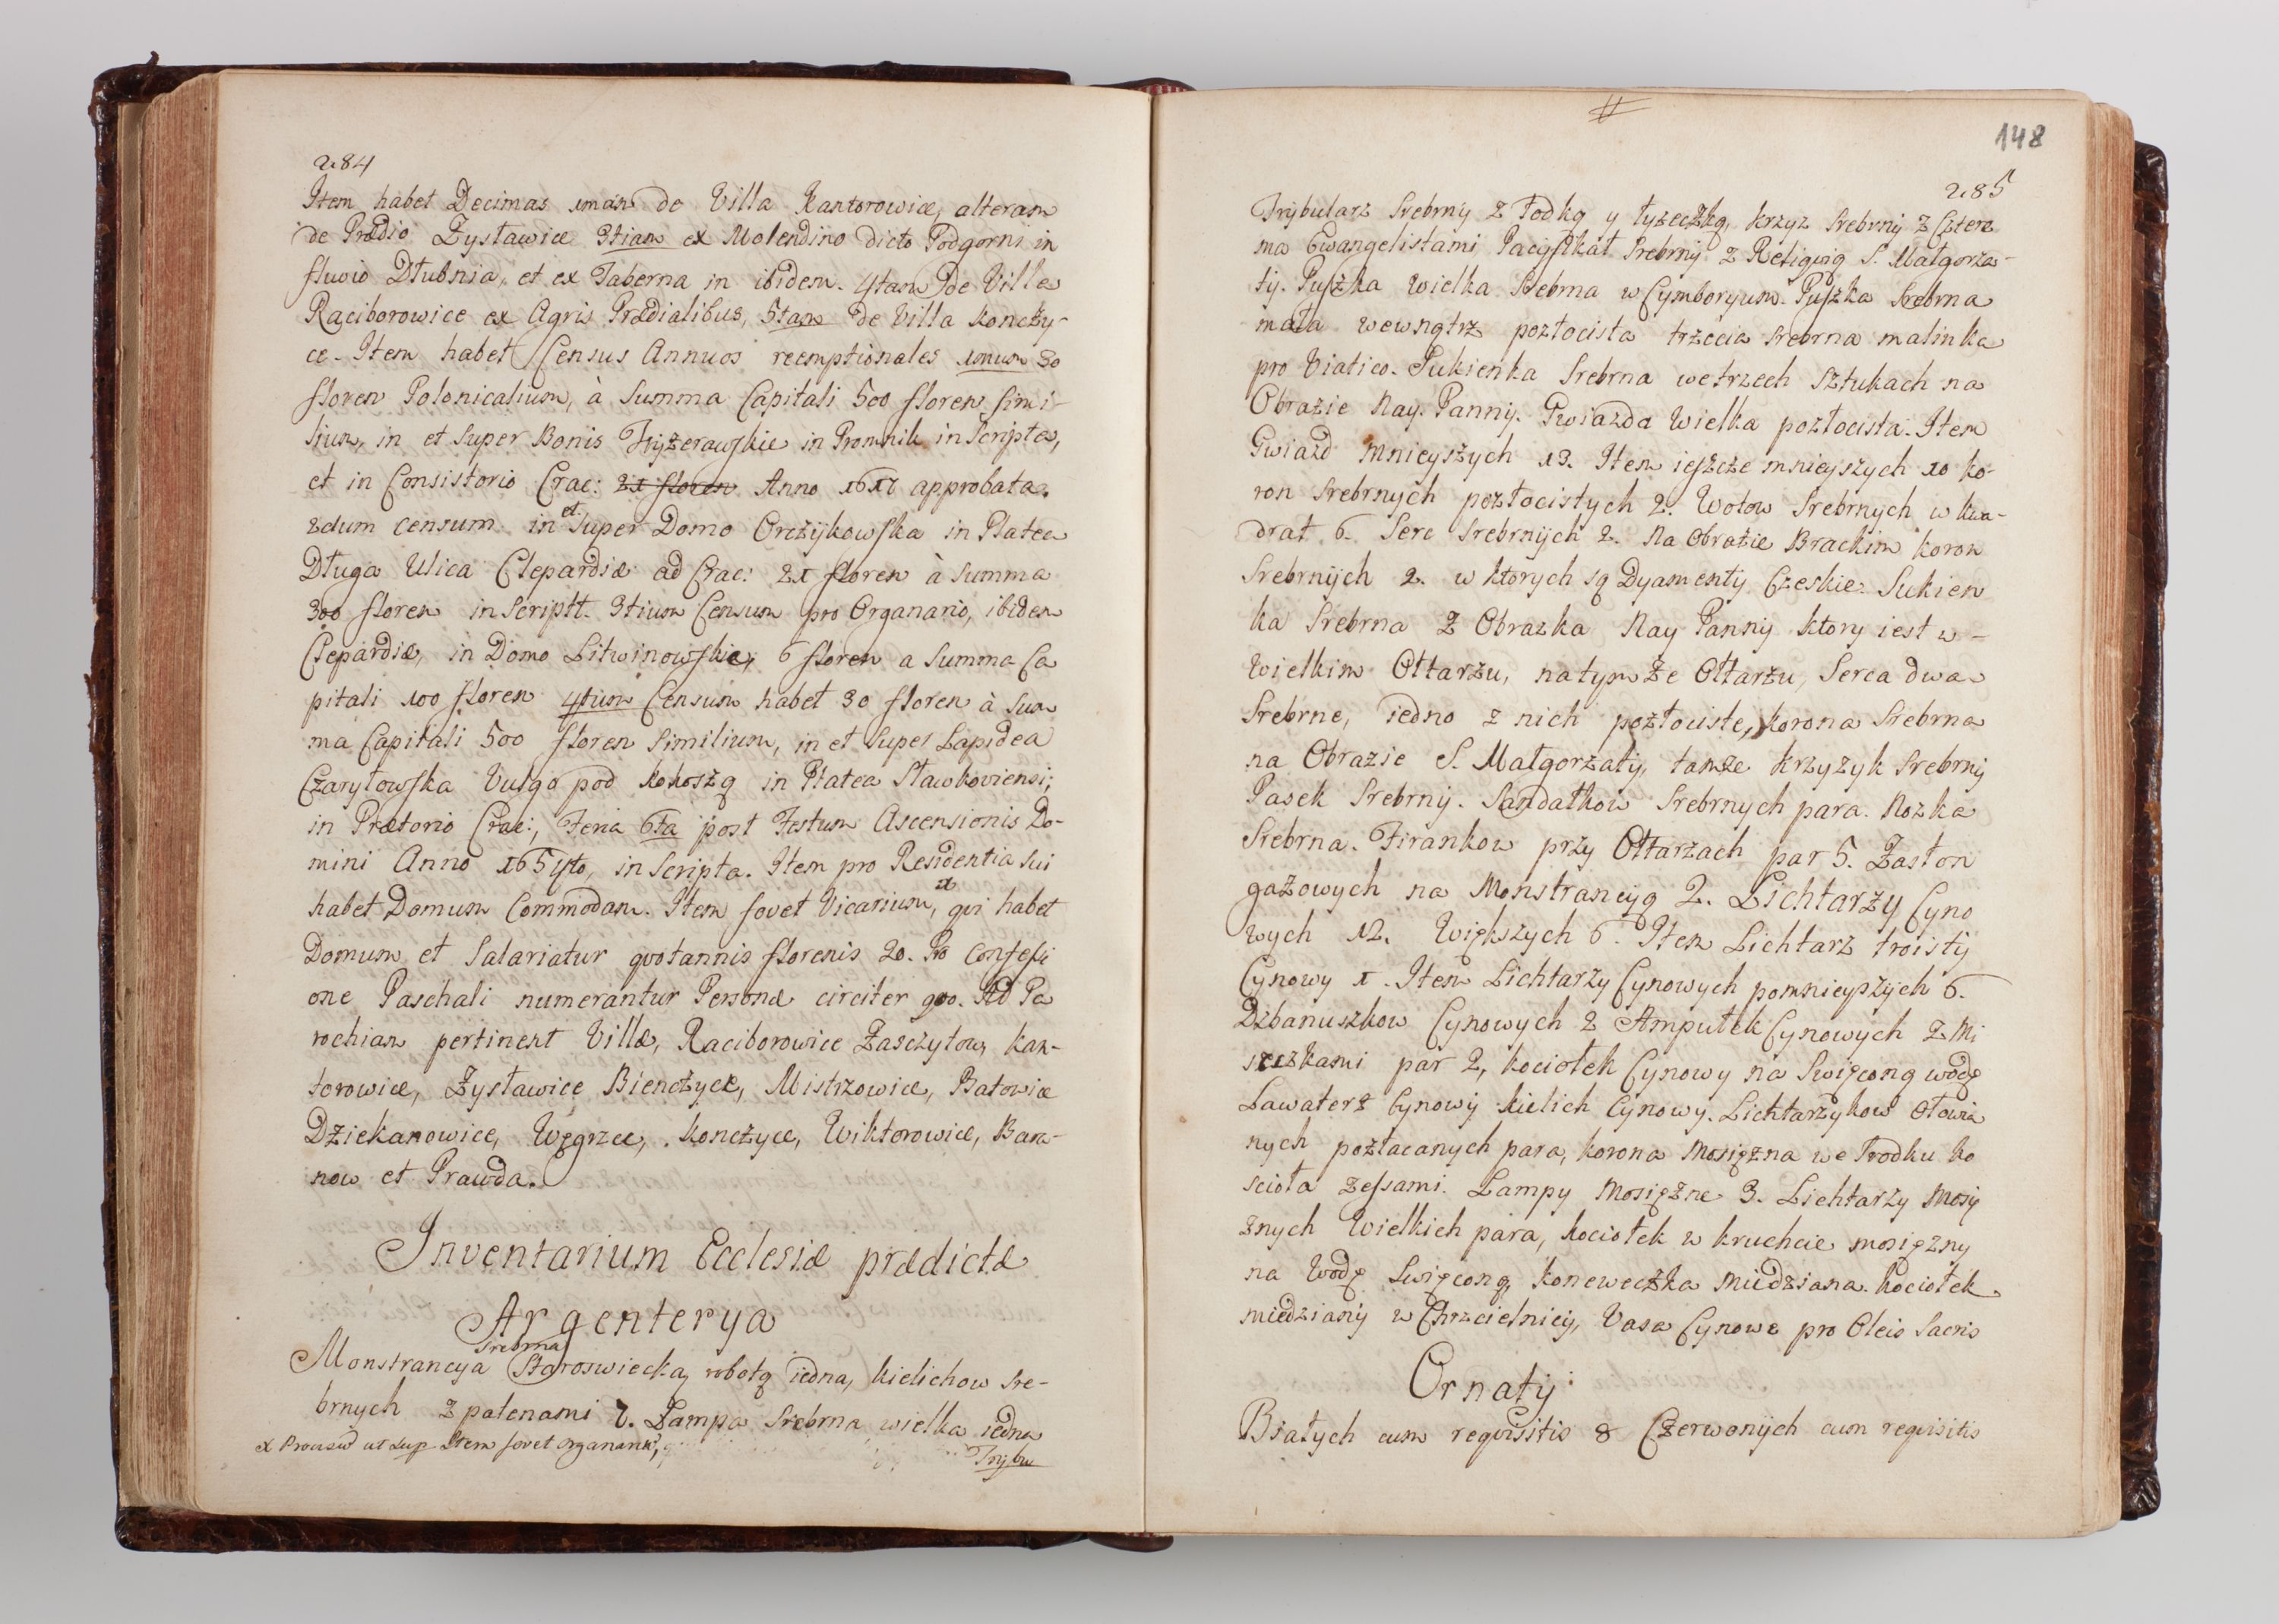 284
Item habet Decimas unam de Villa Kantorowice, alteram
de Prædio Zysławice 3tiam ex Molendino dicto Podgorni in
fluvio Dłubnia, et ex Taberna in ibidem. 4tam de Villa
Raciborowice ex Agris Prædialibus, 5tam de Villa Konczy-
ce. Item habet Census Annuos reemptionales unum 30
floren Polonicalium, à Summa Capitali 500 floren simi-
lium, in et super Bonis in Promnik in scripta,
et in Consistorio Crac: 21 floren Anno 1617 approbata.
2dum censum in et super Domo Orczykowska in Platea
Długa Ulica Clepardiæ ad Crac: 21 floren à Summa
300 floren inscriptt. 3tium Censum pro Organario, ibidem
Clepardiæ, in Domo Litwinowskie, 6 floren a Summa Ca
pitali 100 floren 4tum Censum habet 30 floren à Sum
ma Capitali 500 floren similium, in et super Lapidea
Czaryłowska Vulgo pod Kokoszą in Platea Sławkoviensi;
in Prætorio Crac:, Feria 6ta post Festum Ascensionis Do-
mini Anno 1654to, in scripta. Item pro Residentia sui
habet Domum Commodam. Item fovet Vicarium, x qvi habet
Domum et Salariatur qvotannis florenis 20. Pro Confessi
one Paschali numerantur Personæ circiter 900. Ad Pa
rochiam pertinent Villæ, Raciborowice Zasczytow, Kan-
torowice, Zysławice Bienczyce, Mistrzowice, Batowice
Dziekanowice, Węgrzce, Konczyce, Wiktorowice, Bara-
now et Prawda.
Inventarium Ecclesiæ prædictæ
Argenterya
Srebrna
Monstrancya Staroswiecką robotą iedna, Kielichow Sre-
brnych z patenami 7. Lampa Srebrna wielka iedna
x Provisu ut sup Item fovet Organar,
Trybu
148
285
Trybularz Srebrny z Łodką y łyzeczką, krzyz Srebrny z Cztere
ma Ewangelistami, Pacyfikał Srebrny z Religvią S. Małgorza-
ty. Puszka Wielka Srebrna w Cymboryum. Puszka Srebrna
mała wewnątrz pozłocista trzecia Srebrna malinka
pro Viatico. Sukienka Srebrna wetrzech Sztukach na
Obrazie Nay. Panny. Gwiazda Wielka pozłocista. Item
Gwiazd mnieyszych 13. Item ieszcze mnieyszych 10 ko-
ron Srebrnych pozłocistych 2. Wotow Srebrnych w kwa-
drat 6. Serc Srebrnych 2. Na Obrazie Brackim koron
Srebrnych 2. w ktorych są Dyamenty Czeskie. Sukien
ka Srebrna z Obrazka Nay Panny ktory iest w -
Wielkim Ołtarzu, natymże Ołtarzu, Serca dwa
Srebrne, iedno z nich pozłociste, korona Srebrna
na Obrazie S. Małgorzaty, tamze krzyzyk Srebrny
Pasek Srebrny. Sandałkow Srebrnych para. Nozka
Srebrna. Firankow przy Ołtarzach par 5. Zasłon
gazowych na Monstrancyą 2. Lichtarzy Cyno
wych 12. Większych 6. Item Lichtarz troisty
Cynowy 1. Item Lichtarzy Cynowych pomnieyszych 6.
Dzbanuszkow Cynowych 2 Ampułek Cynowych z Mi
seczkami par 2, kociołek Cynowy na Swięconą wodę
Lawaterz Cynowy kielich Cynowy. Lichtarzykow Ołowia
nych pozłacanych para, korona Mosięzna we Srodku ko
scioła zessami. Lampy Mosięzne 3. Lichtarzy Mosię
znych Wielkich para, kociołek w kruchcie mosięzny
na Wodę Swięconą, koneweczka Miedziana. kociołek
miedziany w Chrzcielnicy, Vasa Cynowe pro Oleis Sacris
Ornaty
Białych cum reqvisitis 8 Czerwonych cum reqvisitis